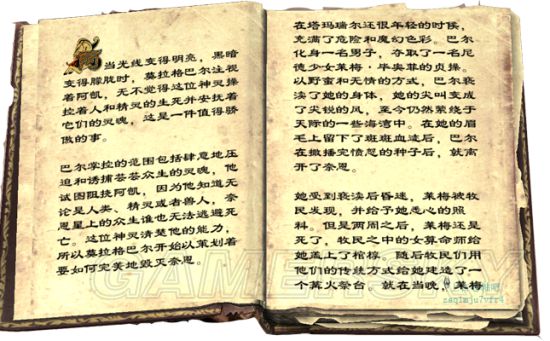 当光线变得明亮，黑暗
变得朦胧时，莫拉格巴尔注视
着阿凯，无不觉得这位神灵操
控着人和精灵的生死并安抚着
它们的灵魂，这是一件值得骄
傲的事。
巴尔掌控的范围包括肆意地压
迫和诱捕芸芸众生的灵魂，他
试图阻挠阿凯，因为他知道无
论是人类、精灵或者兽人，奈
恩星上的众生谁也无法逃避死
亡。这位神灵清楚他的能力，
所以莫拉格巴尔开始以策划着
要如何完美地毁灭奈恩。
在塔玛瑞尔还很年轻的时候，
充满了危险和魔幻色彩。巴尔
化身一名男子，夺取了一名尼
德少女莱梅·毕奥菲的贞操。
以野蛮和无情的方式，巴尔亵
渎了她的身体，她的尖叫变成
了尖锐的风，至今仍然萦绕于
天际的一些海湾中。在她的眉
毛上留下了斑斑血迹后，巴尔
在撒播完愤怒的种子后，就离
开了奈恩。
她受到亵渎后昏迷，莱梅被牧
民发现，并给予她悉心的照
料。但是两周之后，莱梅还是
死了，牧民之中的女算命师给
她盖上了棺椁，随后牧民们用
他们的传统方式给她建造了一
个篝火祭台。就在当晚，莱梅
GAMERSKY